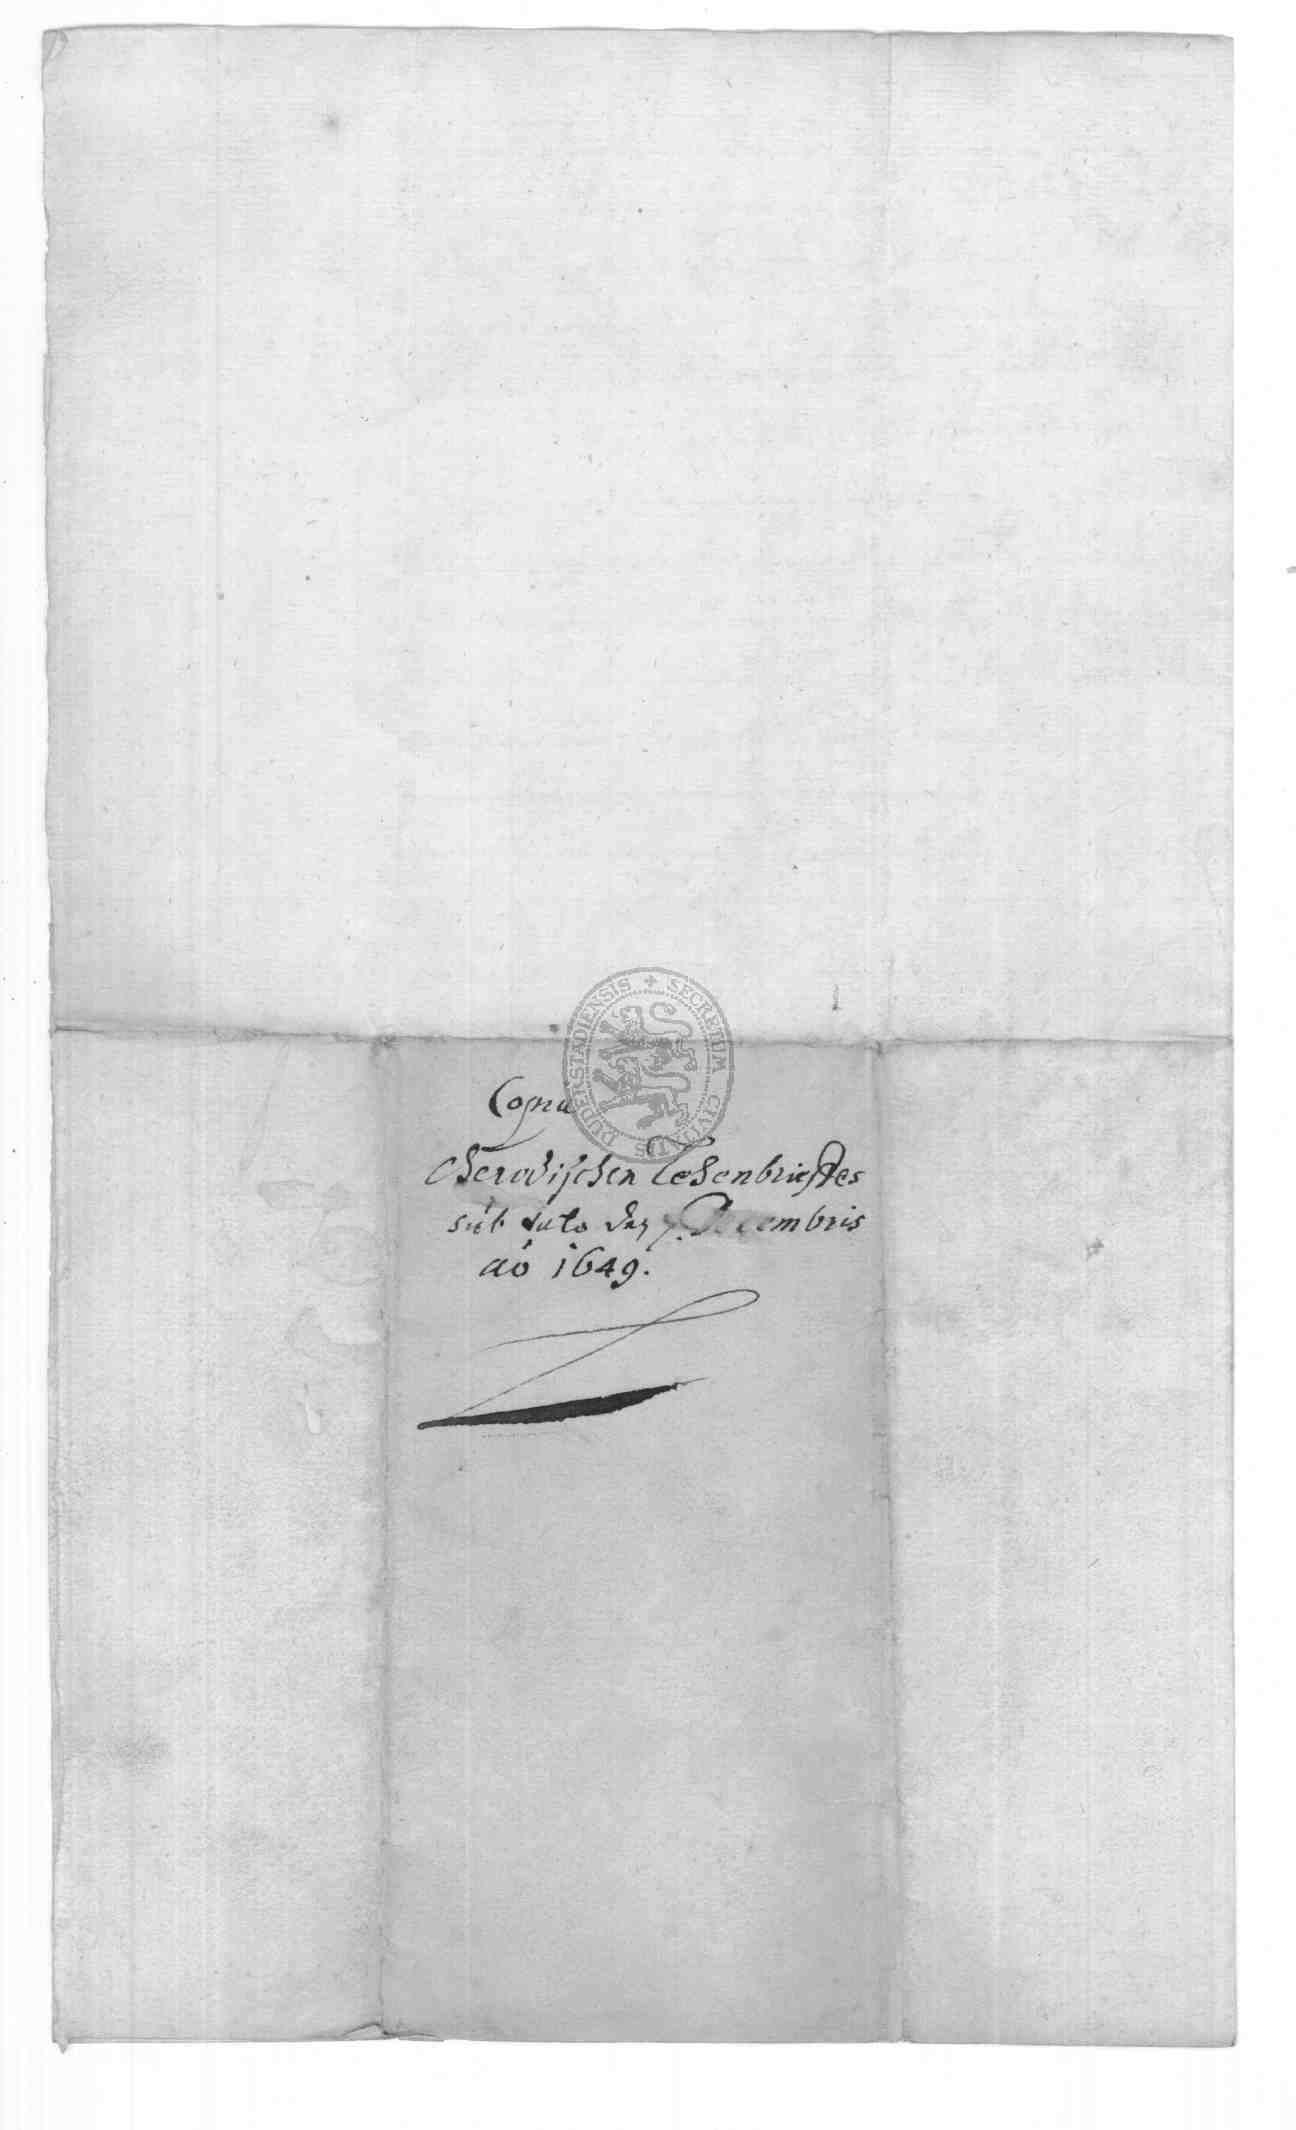 SECRETUM CIVITATIS DUDERSTADIENSIS
Copia
Gerodischen Lehenbrieffes
sub dato den 7. Decembris
ao 1649.